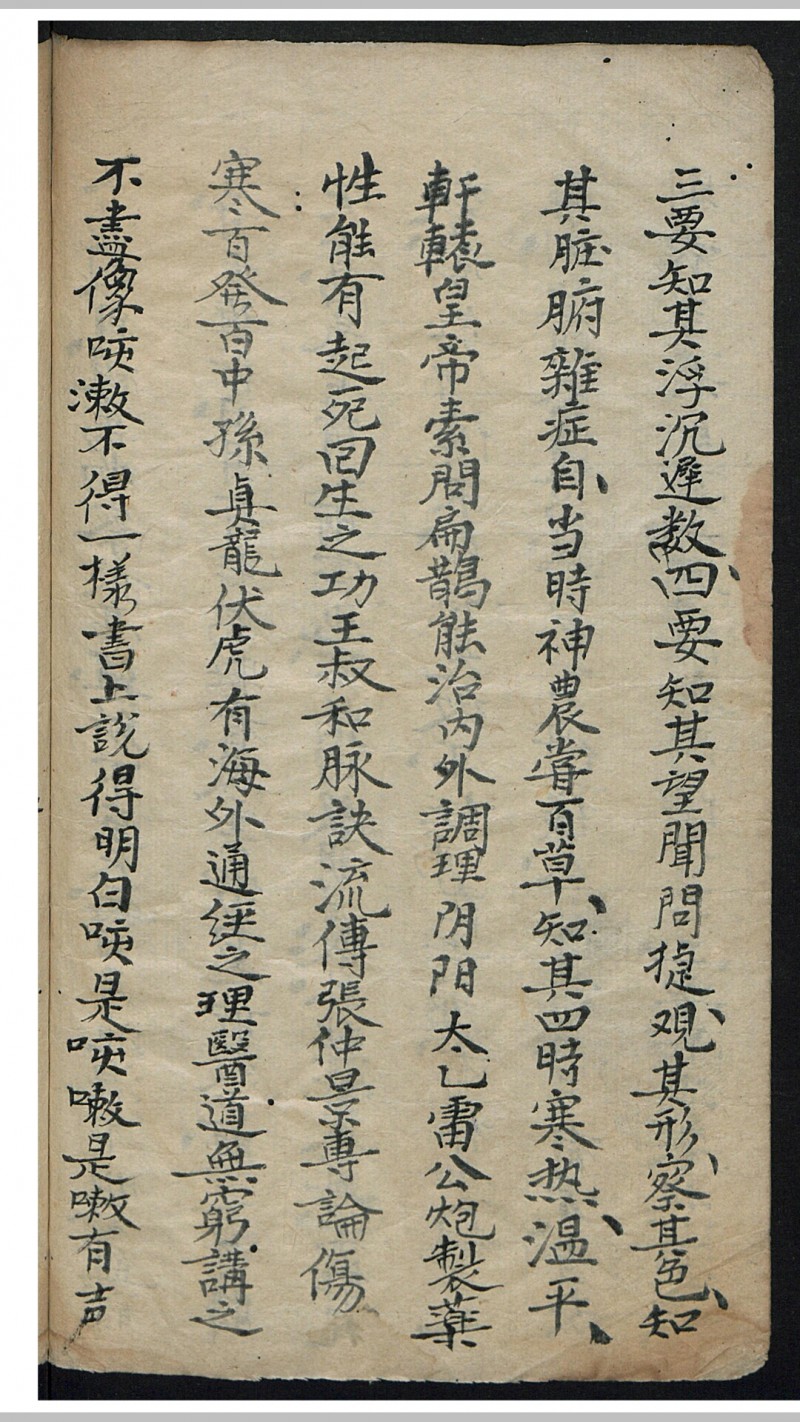 三要知其浮沉遲数、四要知其望聞問㨗观、其形、察其色、知
其脏腑雜症自、当時神農嘗百草、知其四時寒热、温平、
軒轅皇帝素問扁鵲能治内外調理阴阳太乙雷公炮製薬
性能有起死回生之功王叔和脉訣流傳張仲景専論傷
寒百発百中孫真龍伏虎有海外通經之理醫道無窮講之
不盡像咳漱不得一樣書上說得明白咳是咳嗽是嗽有声